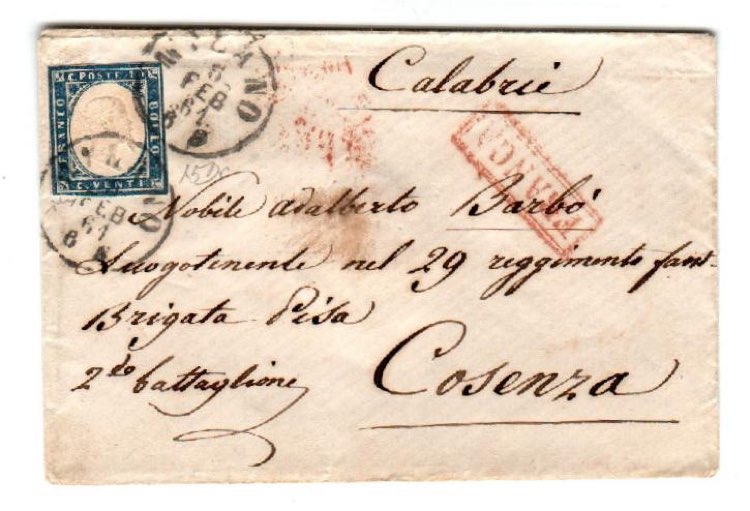 C. POSTE 20
FRANCO
BOLLO
C. VENTI
MILANO
5
FEB
61
FEB
61
15Dc
Calabrie
FRANCA
Nobile Adalberto Barbó
Luogotenente nel 29 reggimento fant
Brigata Pisa
2do battaglione
Cosenza